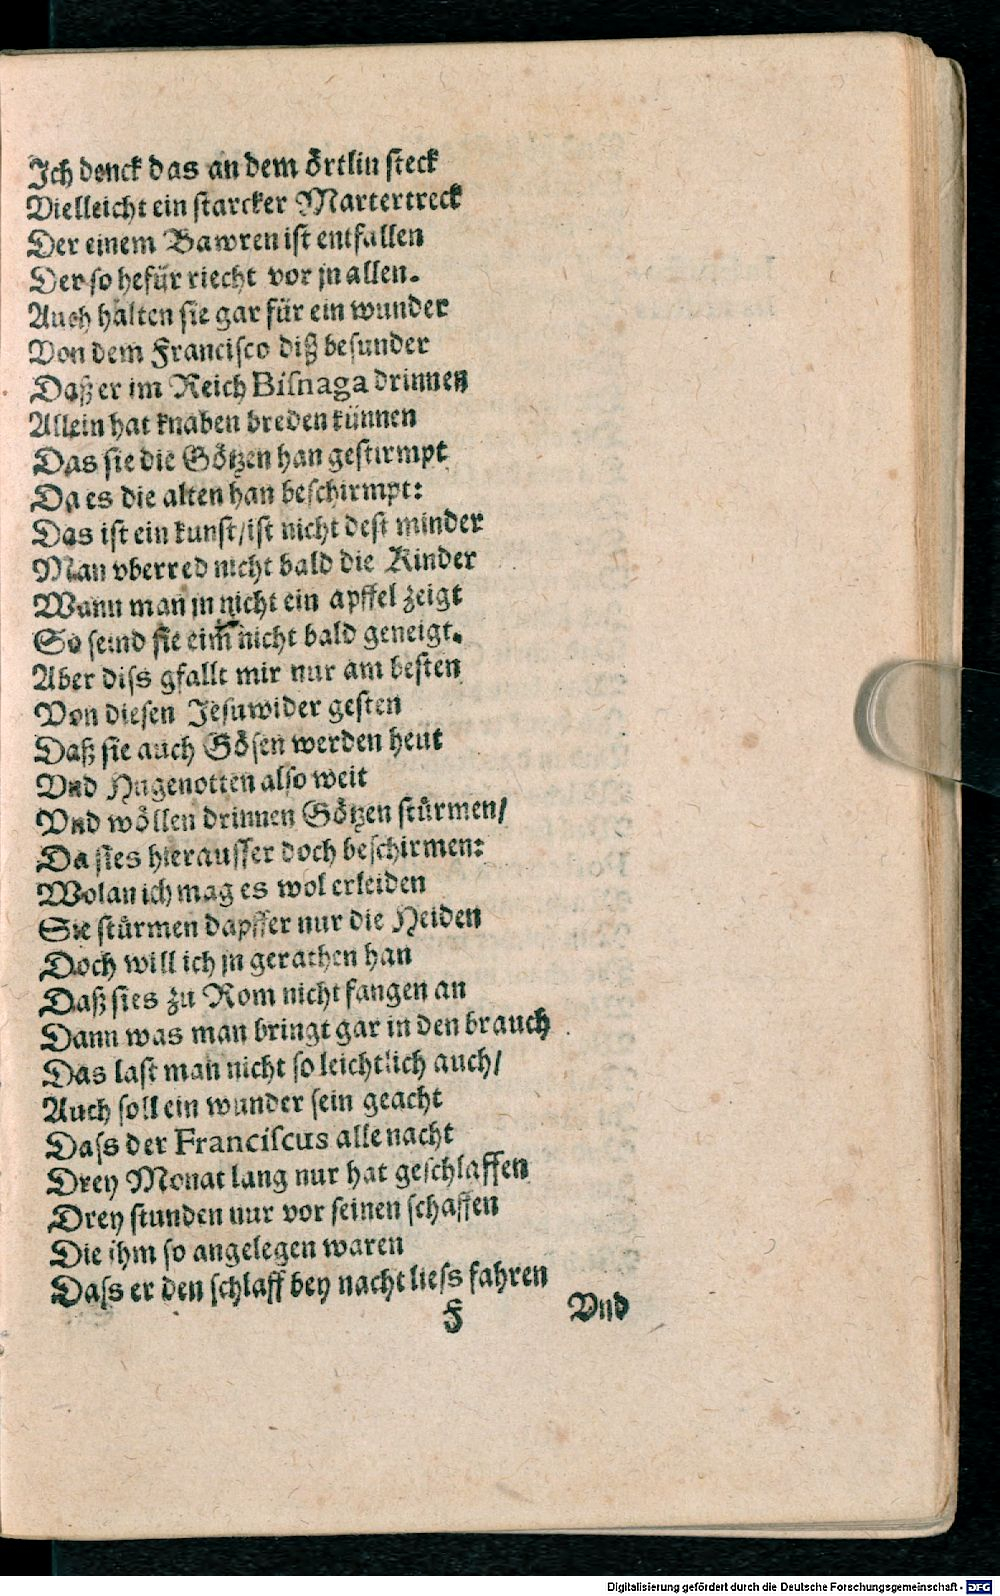 Ich denck das an dem örtlin steck
Vielleicht ein starcker Martertreck
Der einem Bawren ist entfallen
Der so hefür riecht vor jn allen.
Auch halten sie gar für ein wunder
Von dem Francisco diß besunder
Daß er im Reich Biſnaga drinnen
Allein hat knaben breden künnen
Das sie die Götzen han gestirmpt
Da es die alten han beschirmpt:
Das ist ein kunst/ist nicht dest minder
Man vberred nicht bald die Kinder
Wann man jn nicht ein apffel zeigt
So seind sie eim̃ nicht bald geneigt.
Aber diss gfallt mir nur am besten
Von diesen Jesuwider gesten
Daß sie auch Gösen werden heut
Vnd Hugenotten also weit
Vnd wöllen drinnen Götzen stürmen/
Da sies hierausser doch beschirmen:
Wolan ich mag es wol erleiden
Sie stürmen dapffer nur die Heiden
Doch will ich jn gerathen han
Daß sies zu Rom nicht fangen an
Dann was man bringt gar in den brauch
Das last man nicht so leichtlich auch/
Auch soll ein wunder sein geacht
Dass der Franciſcus alle nacht
Drey Monat lang nur hat geschlaffen
Drey stunden nur vor seinen schaffen
Die ihm so angelegen waren
Dass er den schlaff bey nacht liess fahren
F Vnd
Digitalisierung gefördert durch die Deutsche Forschungsgemeinschaft - DFG